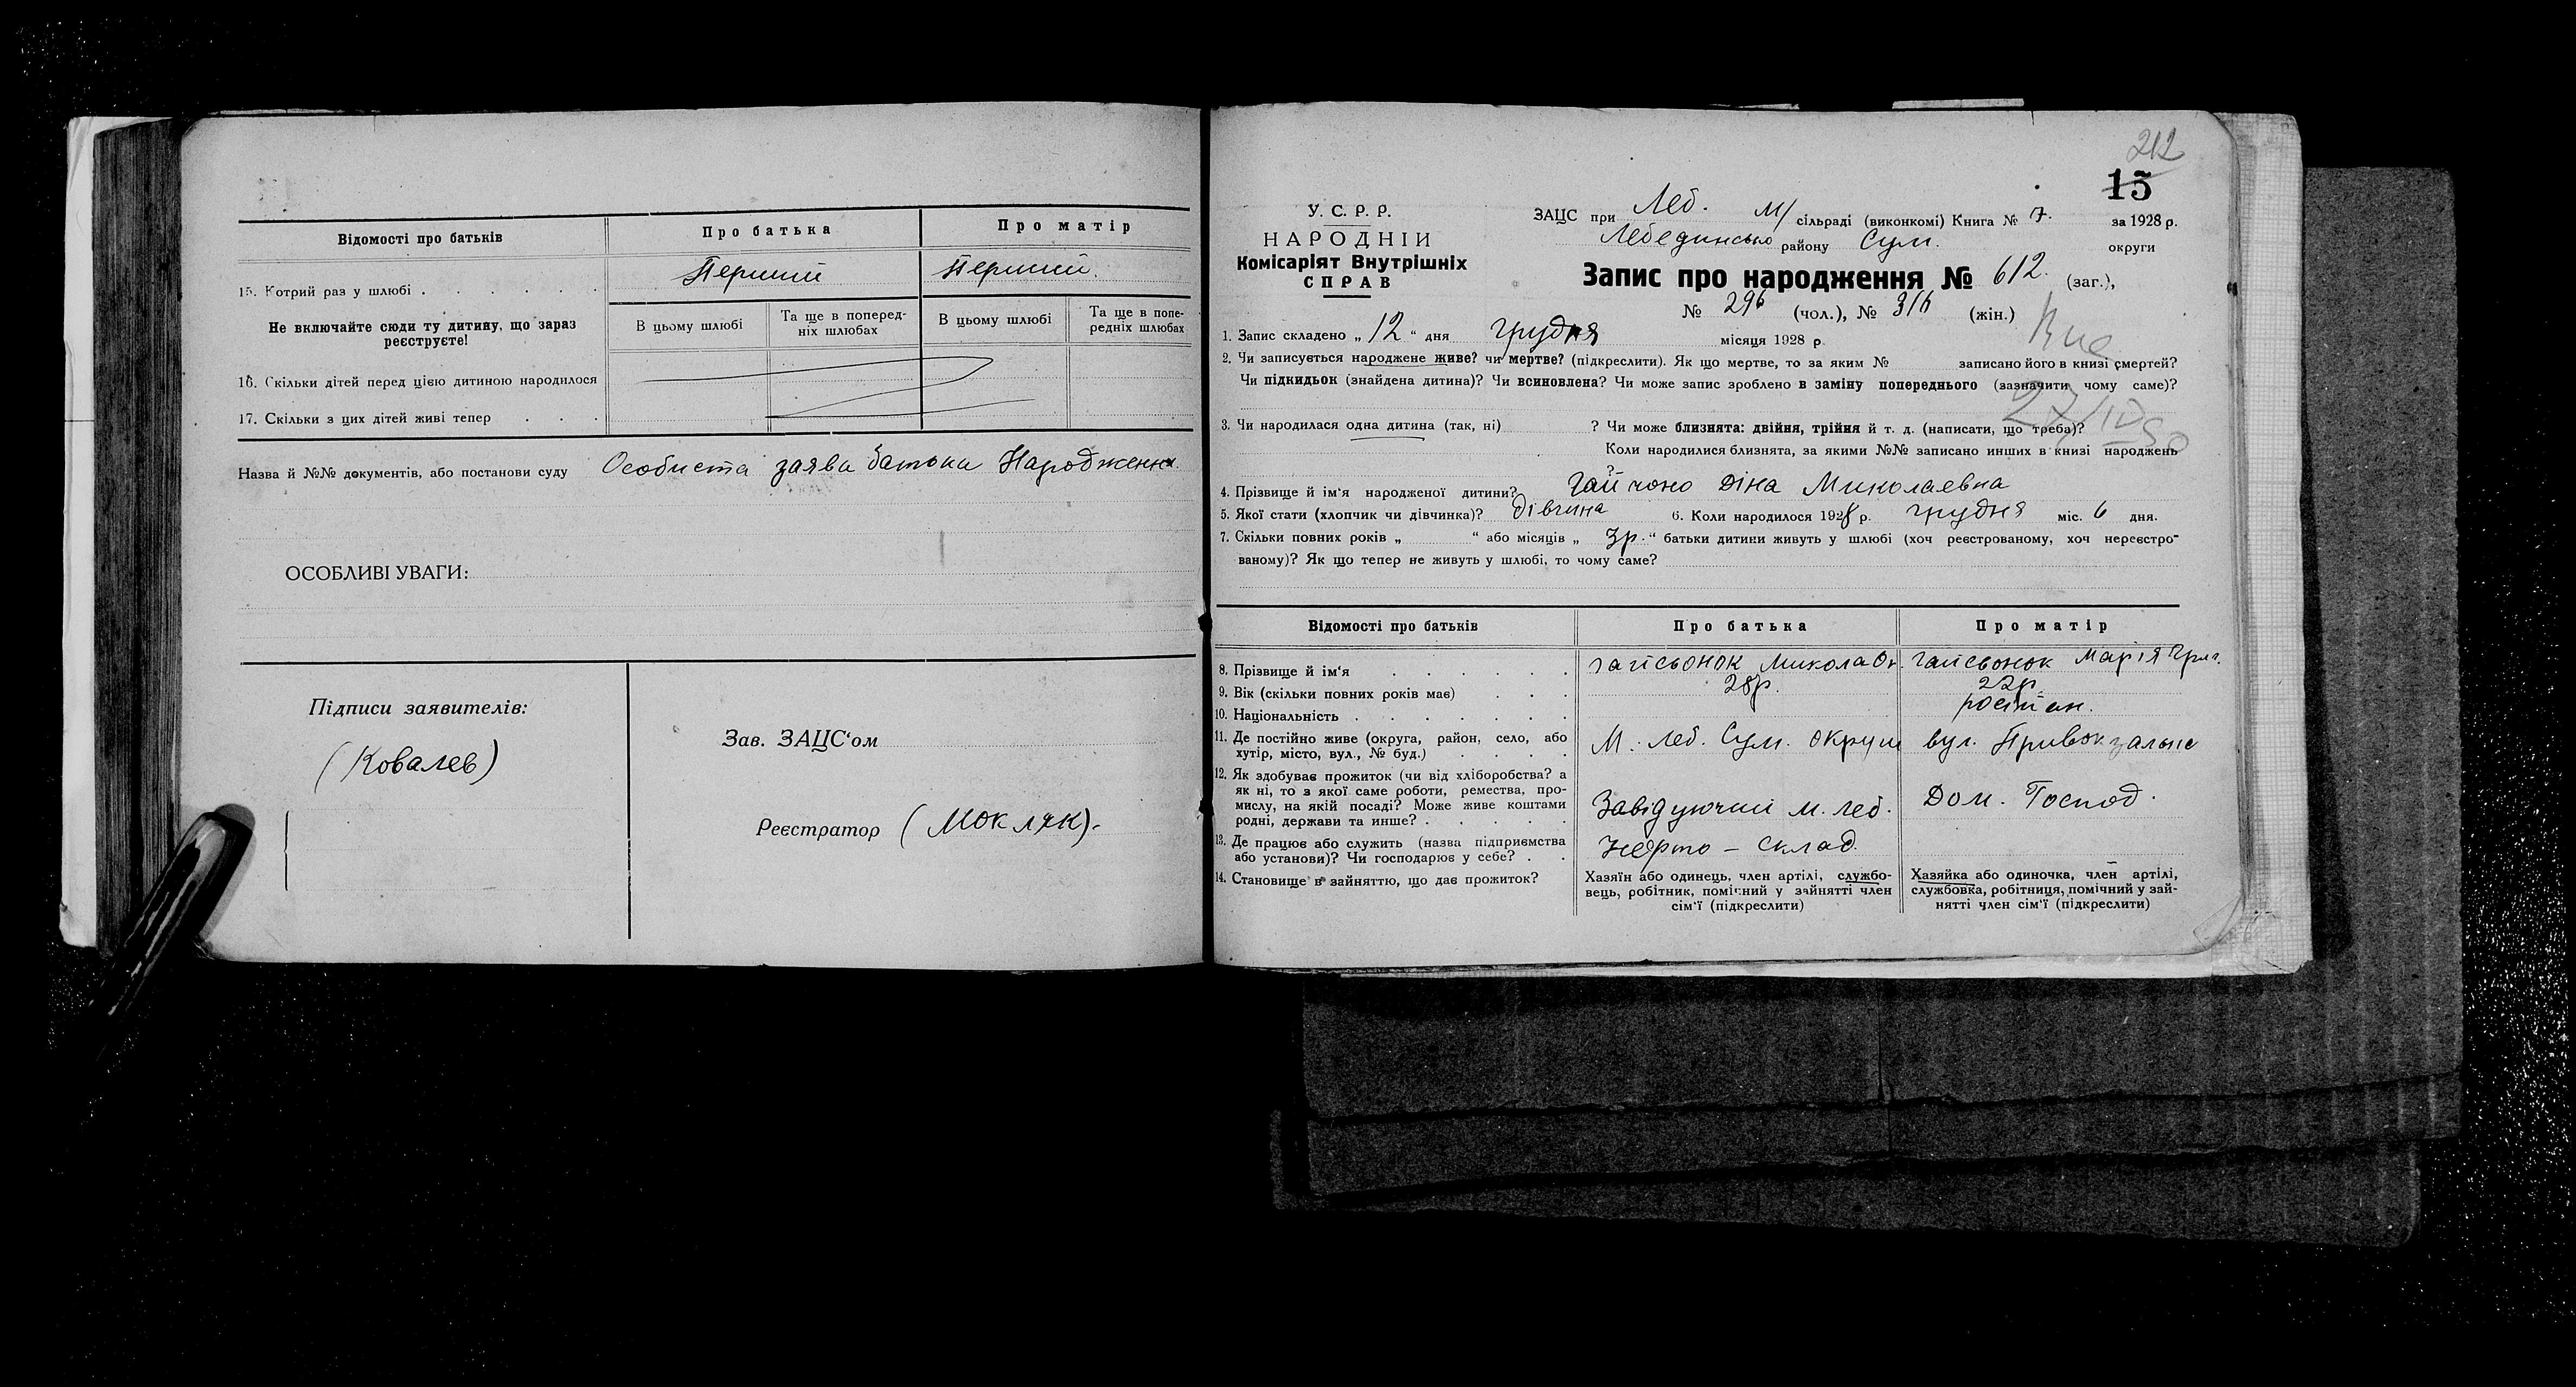 Відомості про батьків
Про батька
Про матір
15. Котрий раз у шлюбі . . . . . .
Перший
Перший.
Не включайте сюди ту дитину, що зараз
реєструєте!
В цьому шлюбі
Та ще в поперед-
ніх шлюбах
В цьому шлюбі
Та ще в попе-
редніх шлюбах
16. Скільки дітей перед цією дитиною народилося
17. Скільки з цих дітей живі тепер . . .
Назва й №№ документів, або постанови суду Особиста заява батька Народження
ОСОБЛИВІ УВАГИ:
Підписи заявителів:
(Ковалев)
Зав. ЗАЦС‘ом
Реєстратор (Мокляк).
212
15
У. С. Р. Р.
НАРОДНІЙ
Комісаріят Внутрішніх
СПРАВ
ЗАЦС при Леб. М/ сільраді (виконкомі) Книга № 7. за 1928 р.
Лебединсько району Сум. округи
Запис про народження № 612. (заг.),
№ 296 (чол.), № 316 (жін.)
1. Запис складено „ 12 “ дня грудня місяця 1928 р.
2. Чи записується народжене живе? чи мертве? (підкреслити). Як що мертве, то за яким № записано його в книзі смертей?
Чи підкидьок (знайдена дитина)? Чи всиновлена? Чи може запис зроблено в заміну попереднього (зазначити чому саме)?
3. Чи народилася одна дитина (так, ні) ? Чи може близнята: двійня, трійня й т. д. (написати, що треба)?
Коли народилися близнята, за якими №№ записано инших в книзі народжень
?
4. Прізвище й ім‘я народженої дитини? Діна Миколаевна
5. Якої стати (хлопчик чи дівчинка)? дівчина 6. Коли народилося 1928 р. грудня міс. 6 дня.
7. Скільки повних років „ “ або місяців „ 3р. “ батьки дитини живуть у шлюбі (хоч реєстрованому, хоч нереєстро-
ваному)? Як що тепер не живуть у шлюбі, то чому саме?
Відомості про батьків
Про батька
Про матір
8. Прізвище й ім‘я . . . . . .
гайсьонок Микола
гайсьонок Марія Григ.
9. Вік (скільки повних років має) . . .
28р.
22р.
10. Національність . . . . . . .
11. Де постійно живе (округа, район, село, або
хутір, місто, вул., № буд.) . . . .
М. Леб. Сум. округи
вул. Привокзальне
12. Як здобуває прожиток (чи від хліборобства? а
як ні, то з якої саме роботи, ремества, про-
мислу, на якій посаді? Може живе коштами
родні, держави та инше? . . . . .
Завідуючий м. леб.
Дом. Господ.
13. Де працює або служить (назва підприємства
або установи)? Чи господарює у себе? . .
Нефто – склад.
14. Становище в зайняттю, що дає прожиток?
Хазяїн або одинець, член артілі, службо-
вець, робітник, помічний у зайнятті член
сім‘ї (підкреслити)
Хазяйка або одиночка, член артілі,
службовка, робітниця, помічний у зай-
нятті член сім‘ї (підкреслити)